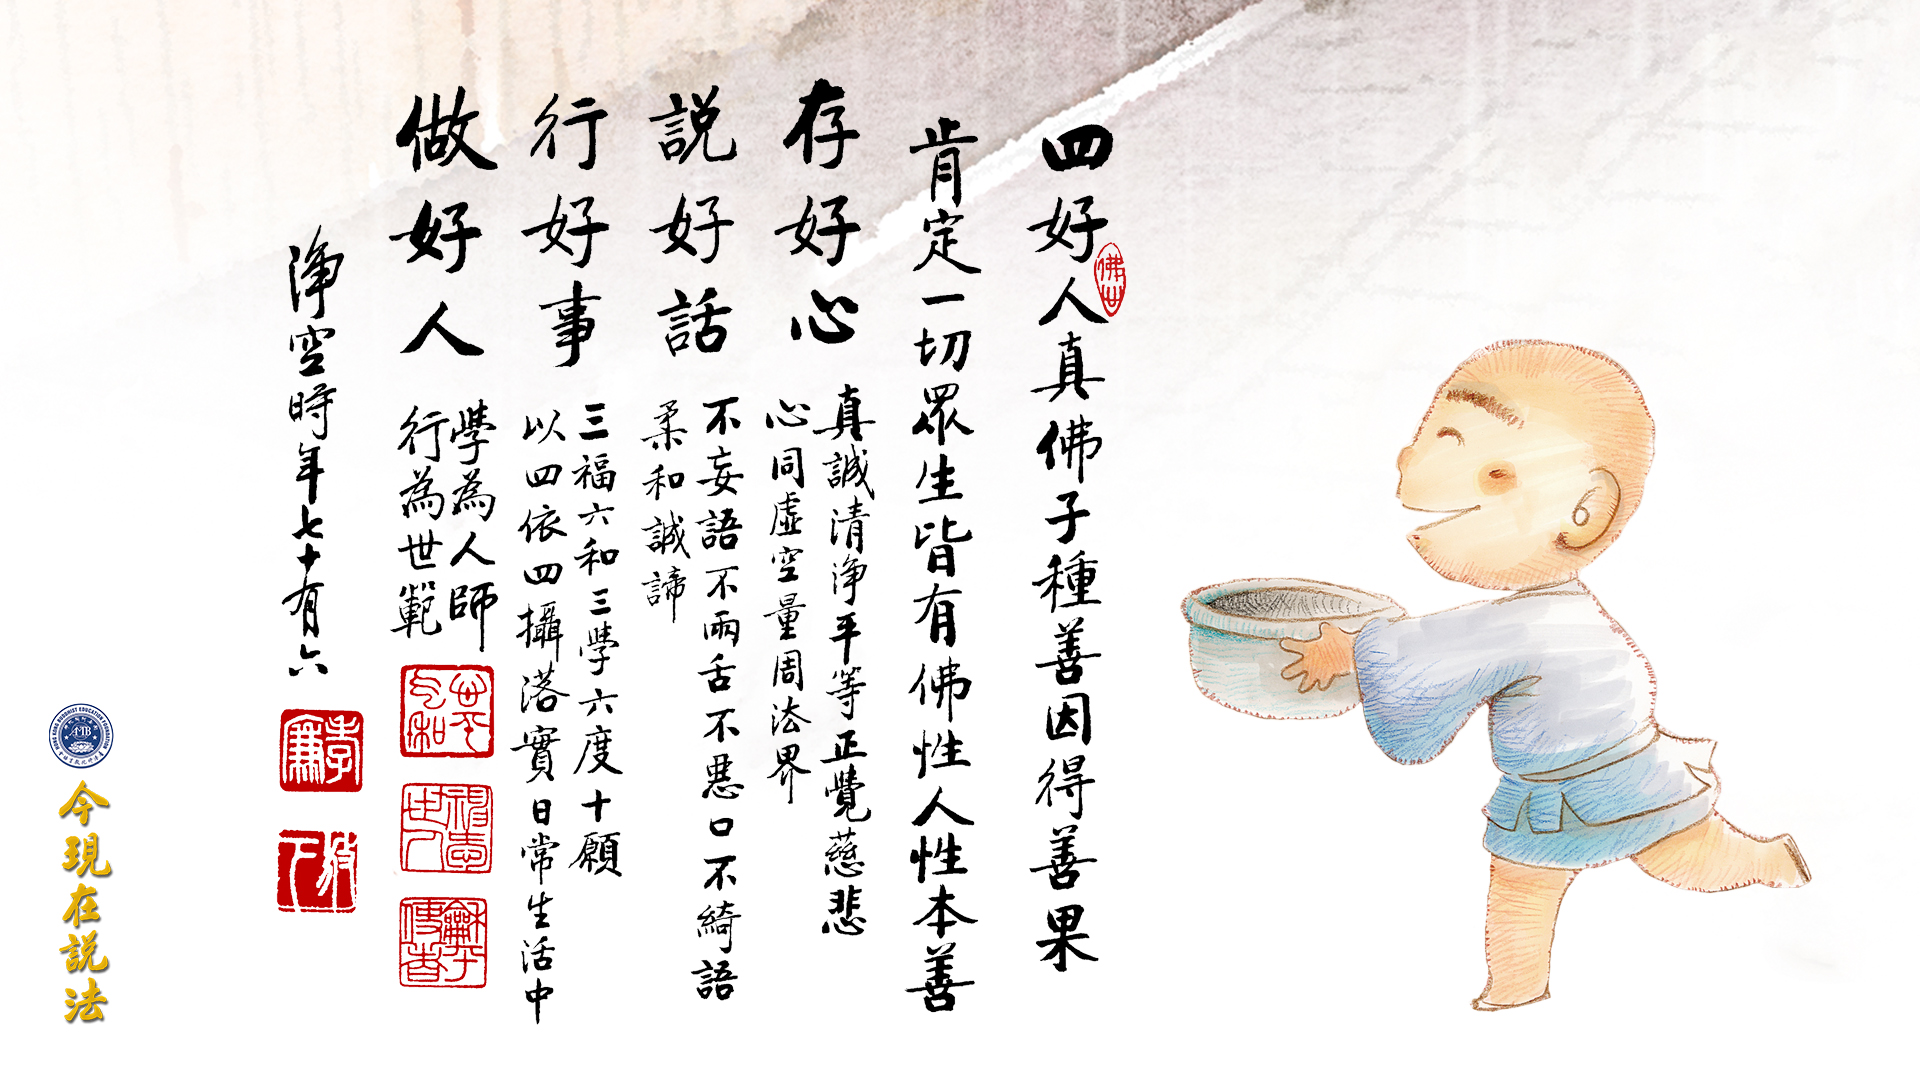 四好人真佛子種善因得善果
肯定一切眾生皆有佛性人性本善
存好心
真誠清淨平等正覺慈悲
心同虛空量周法界
說好話
不妄語不兩舌不惡口不綺語
柔和誠諦
行好事
三福六和三學六度十願
以四依四攝落實日常生活中
做好人
學為人師
行為世範
淨空時年七十有六
今現在說法